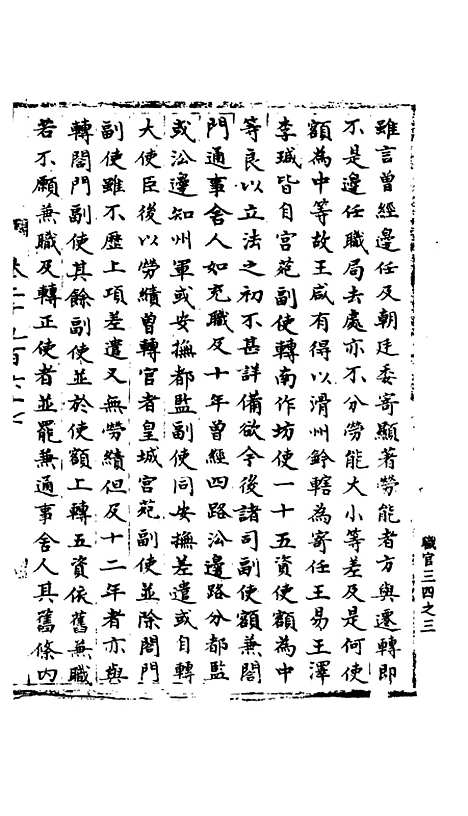 職官三四之三
雖言曾經邊任及朝廷委寄顯著勞能者方與遷轉即
不是邊任職局去處亦不分勞能大小等差及是何使
額為中等故王咸有得以滑州鈐轄為寄任王易王澤
李珹皆自宮苑副使轉南作坊使一十五資使額為中
等良以立法之初不甚詳備欲今後諸司副使額兼閤
門通事舍人如充職及十年曾經四路沿邊路分都監
或沿邊知州軍或安撫都監副使同安撫差遣或自轉
大使臣後以勞績曾轉官者皇城宮苑副使並除閤門
副使雖不歷上項差遣又無勞績但及十二年者亦與
轉閤門副使其餘副使並於使額上轉五資依舊兼職
若不願兼職及轉正使者並罷兼通事舍人其舊條內